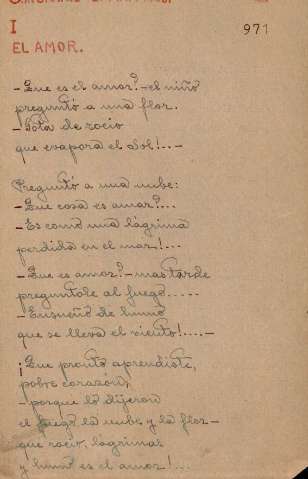 I
971
EL AMOR.
-Que es el amor?-el niño
preguntó a una flor.
-Gota de rocio
que evapora el Sol!..-
Preguntó a una nube:
-Que cosa es amor?...
-Es como una lágrima
perdida en el mar!...
-Que es amor?-mas tarde
preguntale al fuego.....
-Ensueño de humo
que se lleva el viento!....-
¡Que pronto aprendiste,
pobre corazón,
-porque lo dijeron
el fuego la nube y la flor-
que rocio, lágrimas
y humo es el amor!...